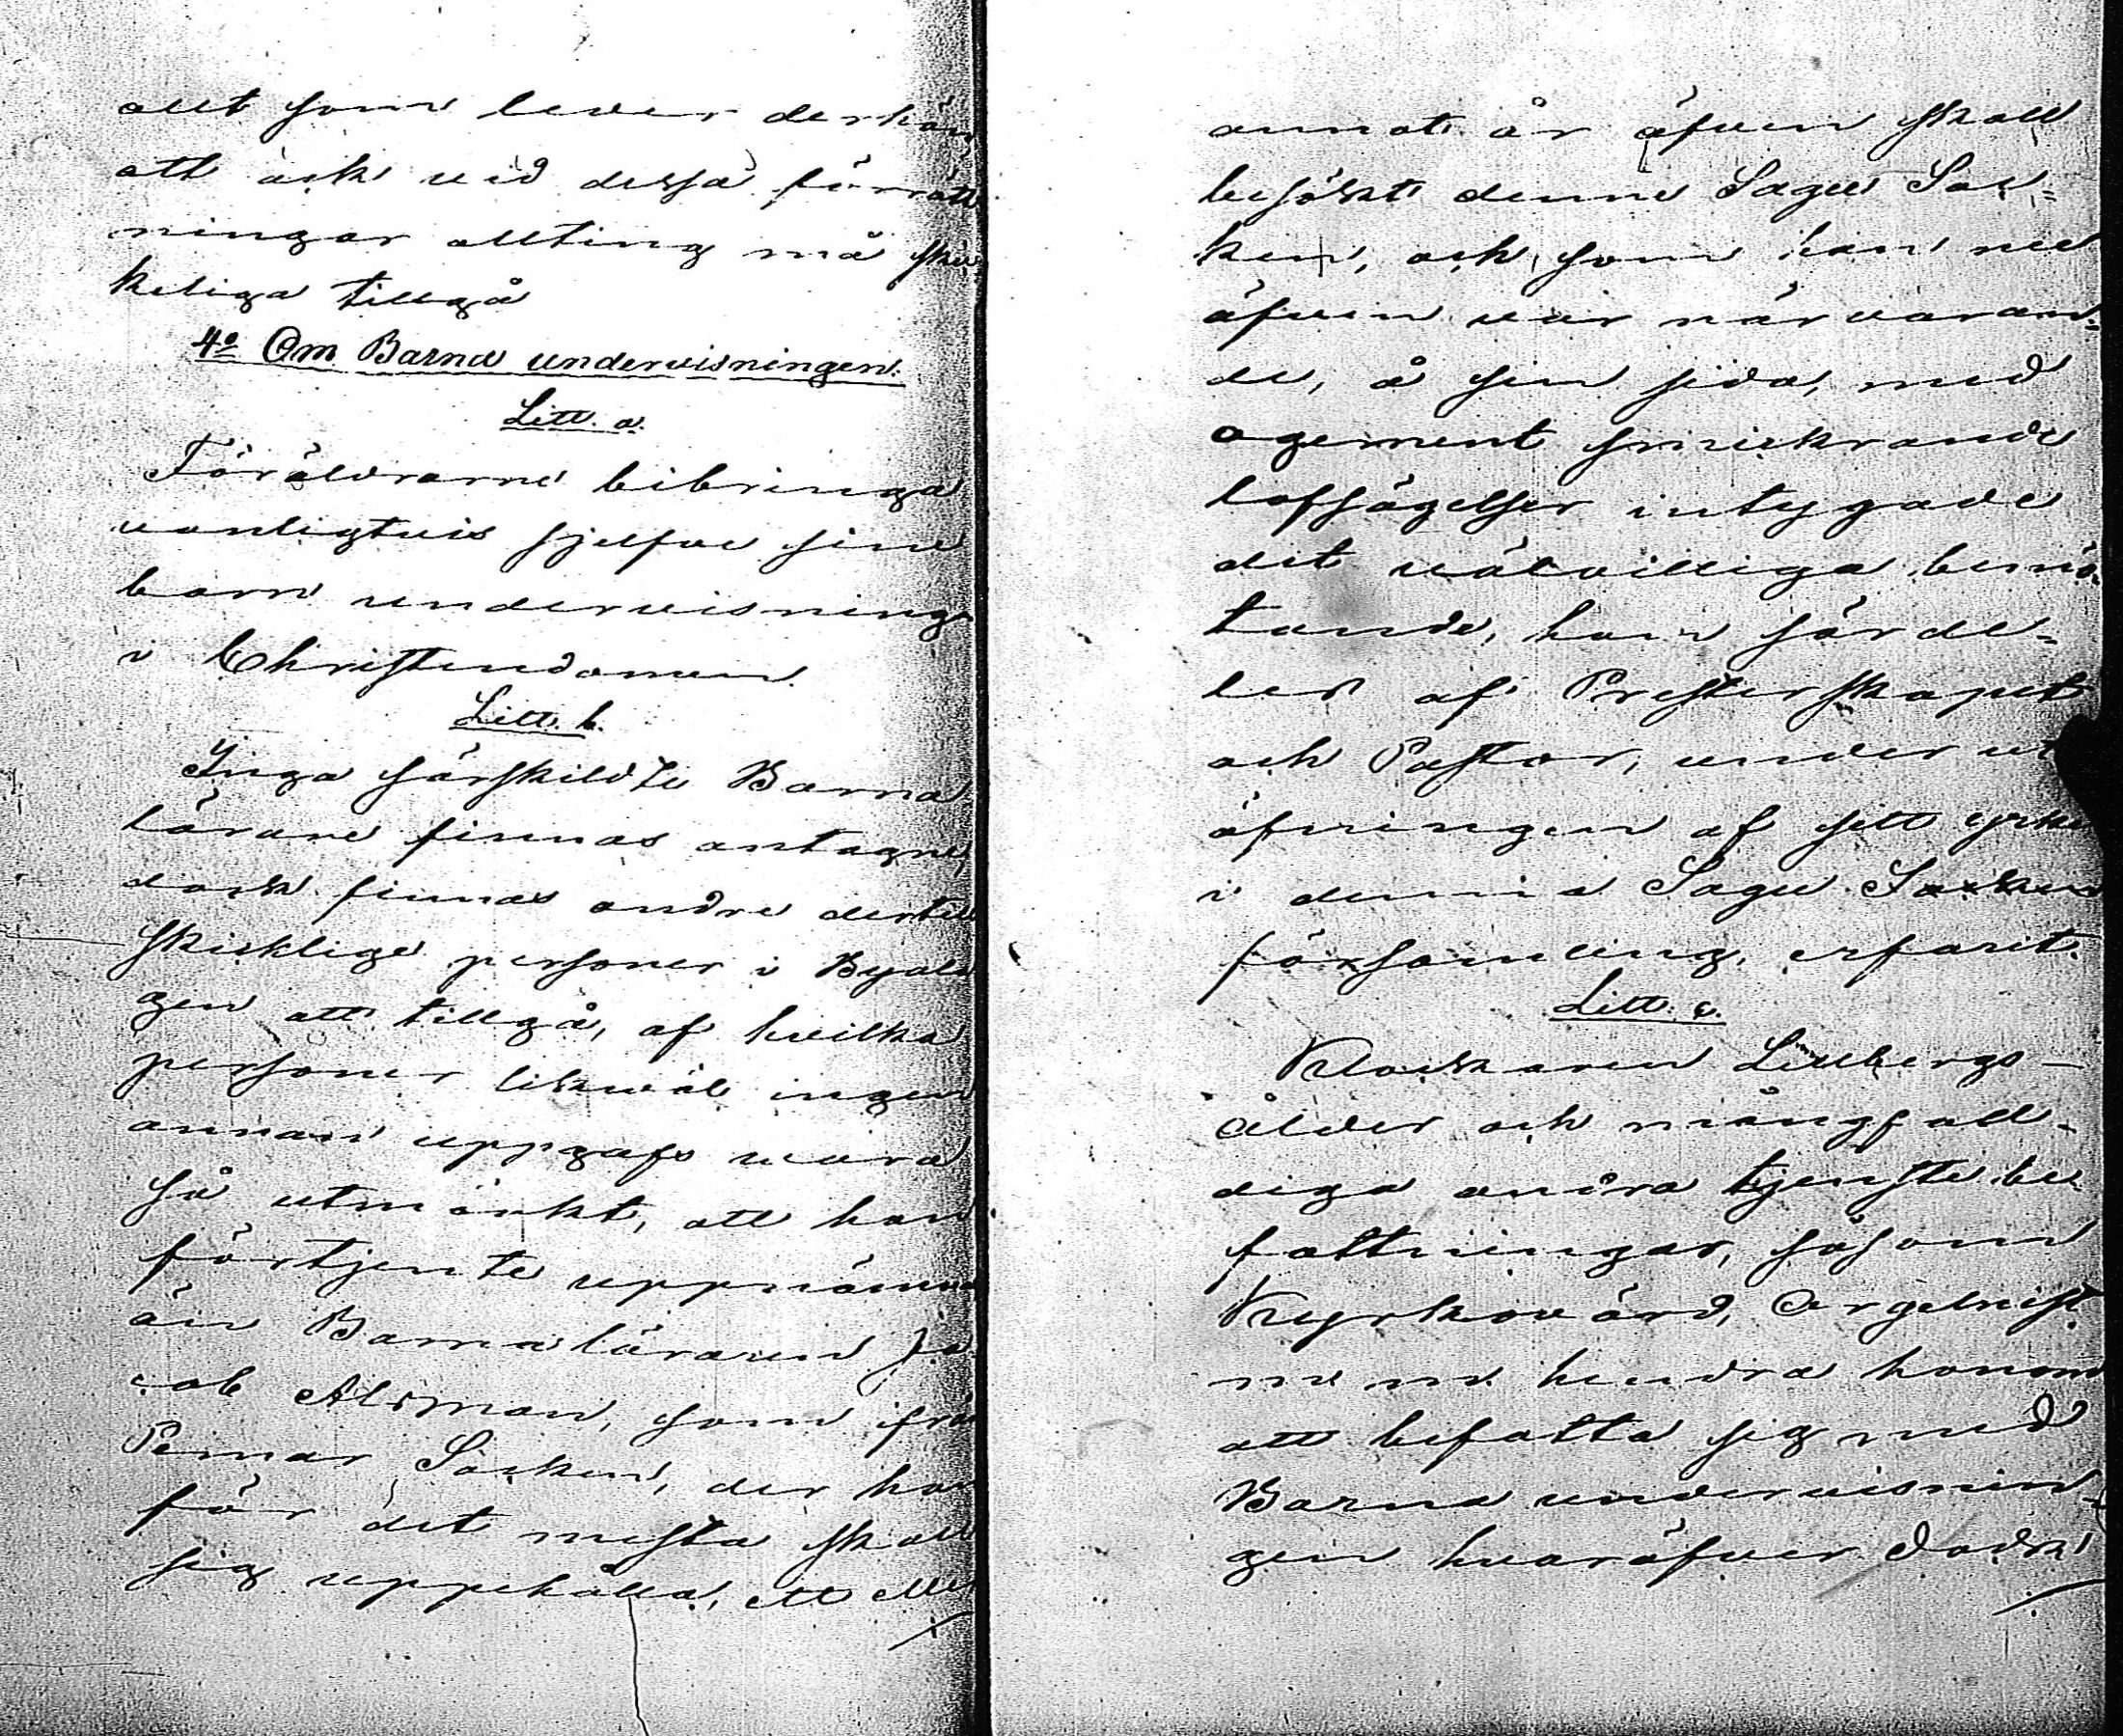 allt som leder derhän
att ock vid dessa förrätt
ningar allting må skic
keliga tillgå
4o Om Barna undervisningen.
Litt. a.
Föräldrarne bibringa
vanligtvis sjelfve sine
barn undervisning
i Christendomen.
Litt. b.
Inga särskildte Barna
lärare finnas antagne,
dock finnas andre dertill
skicklige personer i Byala
gen att tillgå, af hvilka
personer likväl ingen
annan uppgafs vara
så utmärkt, att han
förtjente uppnämnas
än Barnaläraren Ja
cob Alsman, som ifrån
Pemar Socken, der han
för det mesta skall
sig uppehålla, ett eller
annat år äfven skall
besökt denne Sagu Soc=
ken, och som han nu
äfven var närvaran=
de, å sin sida, med
agement smickrande
lofsägelser intygade
det välvilliga bemö
tande, han särde=
les af Presterskapet
och Pastor, under ut
öfningen af sitt yrke
i denna Sagu Socken
församling, erfarit.
Litt. c.
Klockaren Lilbergs
ålder och mångfall=
diga andra tjenste be
fattningar, såsom
Kyrkovärd, Orgelnist
m m. hindra honom
att befatta sig med
Barna undervisnin=
gen hvaröfver dock